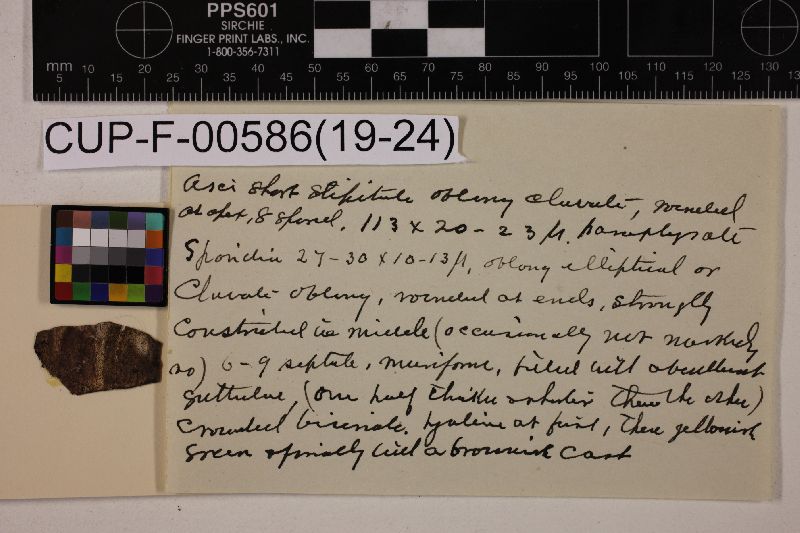 PPS601
SIRCHIE
FINGER PRINT LABS., INC.
1-800-356-7311
mm
5 10 15 20 25 30 35 40 45 50 55 60 65 70 75 80 85 90 95 100 105 110 115 120 125 130
CUP-F-00586(19-24)
Asci short stipitate oblong clavate, rounded
at apex, 8 spored. 113 x 20-23 µ. paraphysate
Sporidia 27-30 x 10-13 µ, oblong elliptical or
Clavate oblong, rounded at ends, strongly
Constricted in middle (occasionally not markedly
so) 6-9 septate, muriform, filled with
guttulae, (one half thicker & shorter than the other)
Crowded biseriate. hyaline at first, then yellowish
green & finally with a brownish cast